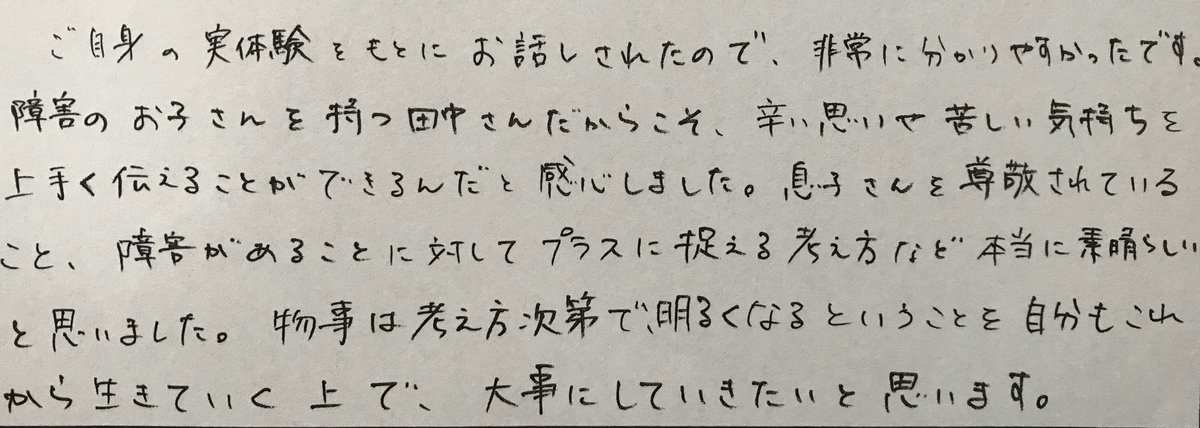 ご自身の実体験をもとにお話しされたので、非常に分かりやすかったです。
障害のお子さんを持つ田中さんだからこそ、辛い思いや苦しい気持ちを
上手く伝えることができるんだと感心しました。息子さんを尊敬されている
こと、障害があることに対してプラスに捉える考え方など本当に素晴らしい
と思いました。物事は考え方次第で、明るくなるということを自分もこれ
から生きていく上で、大事にしていきたいと思います。